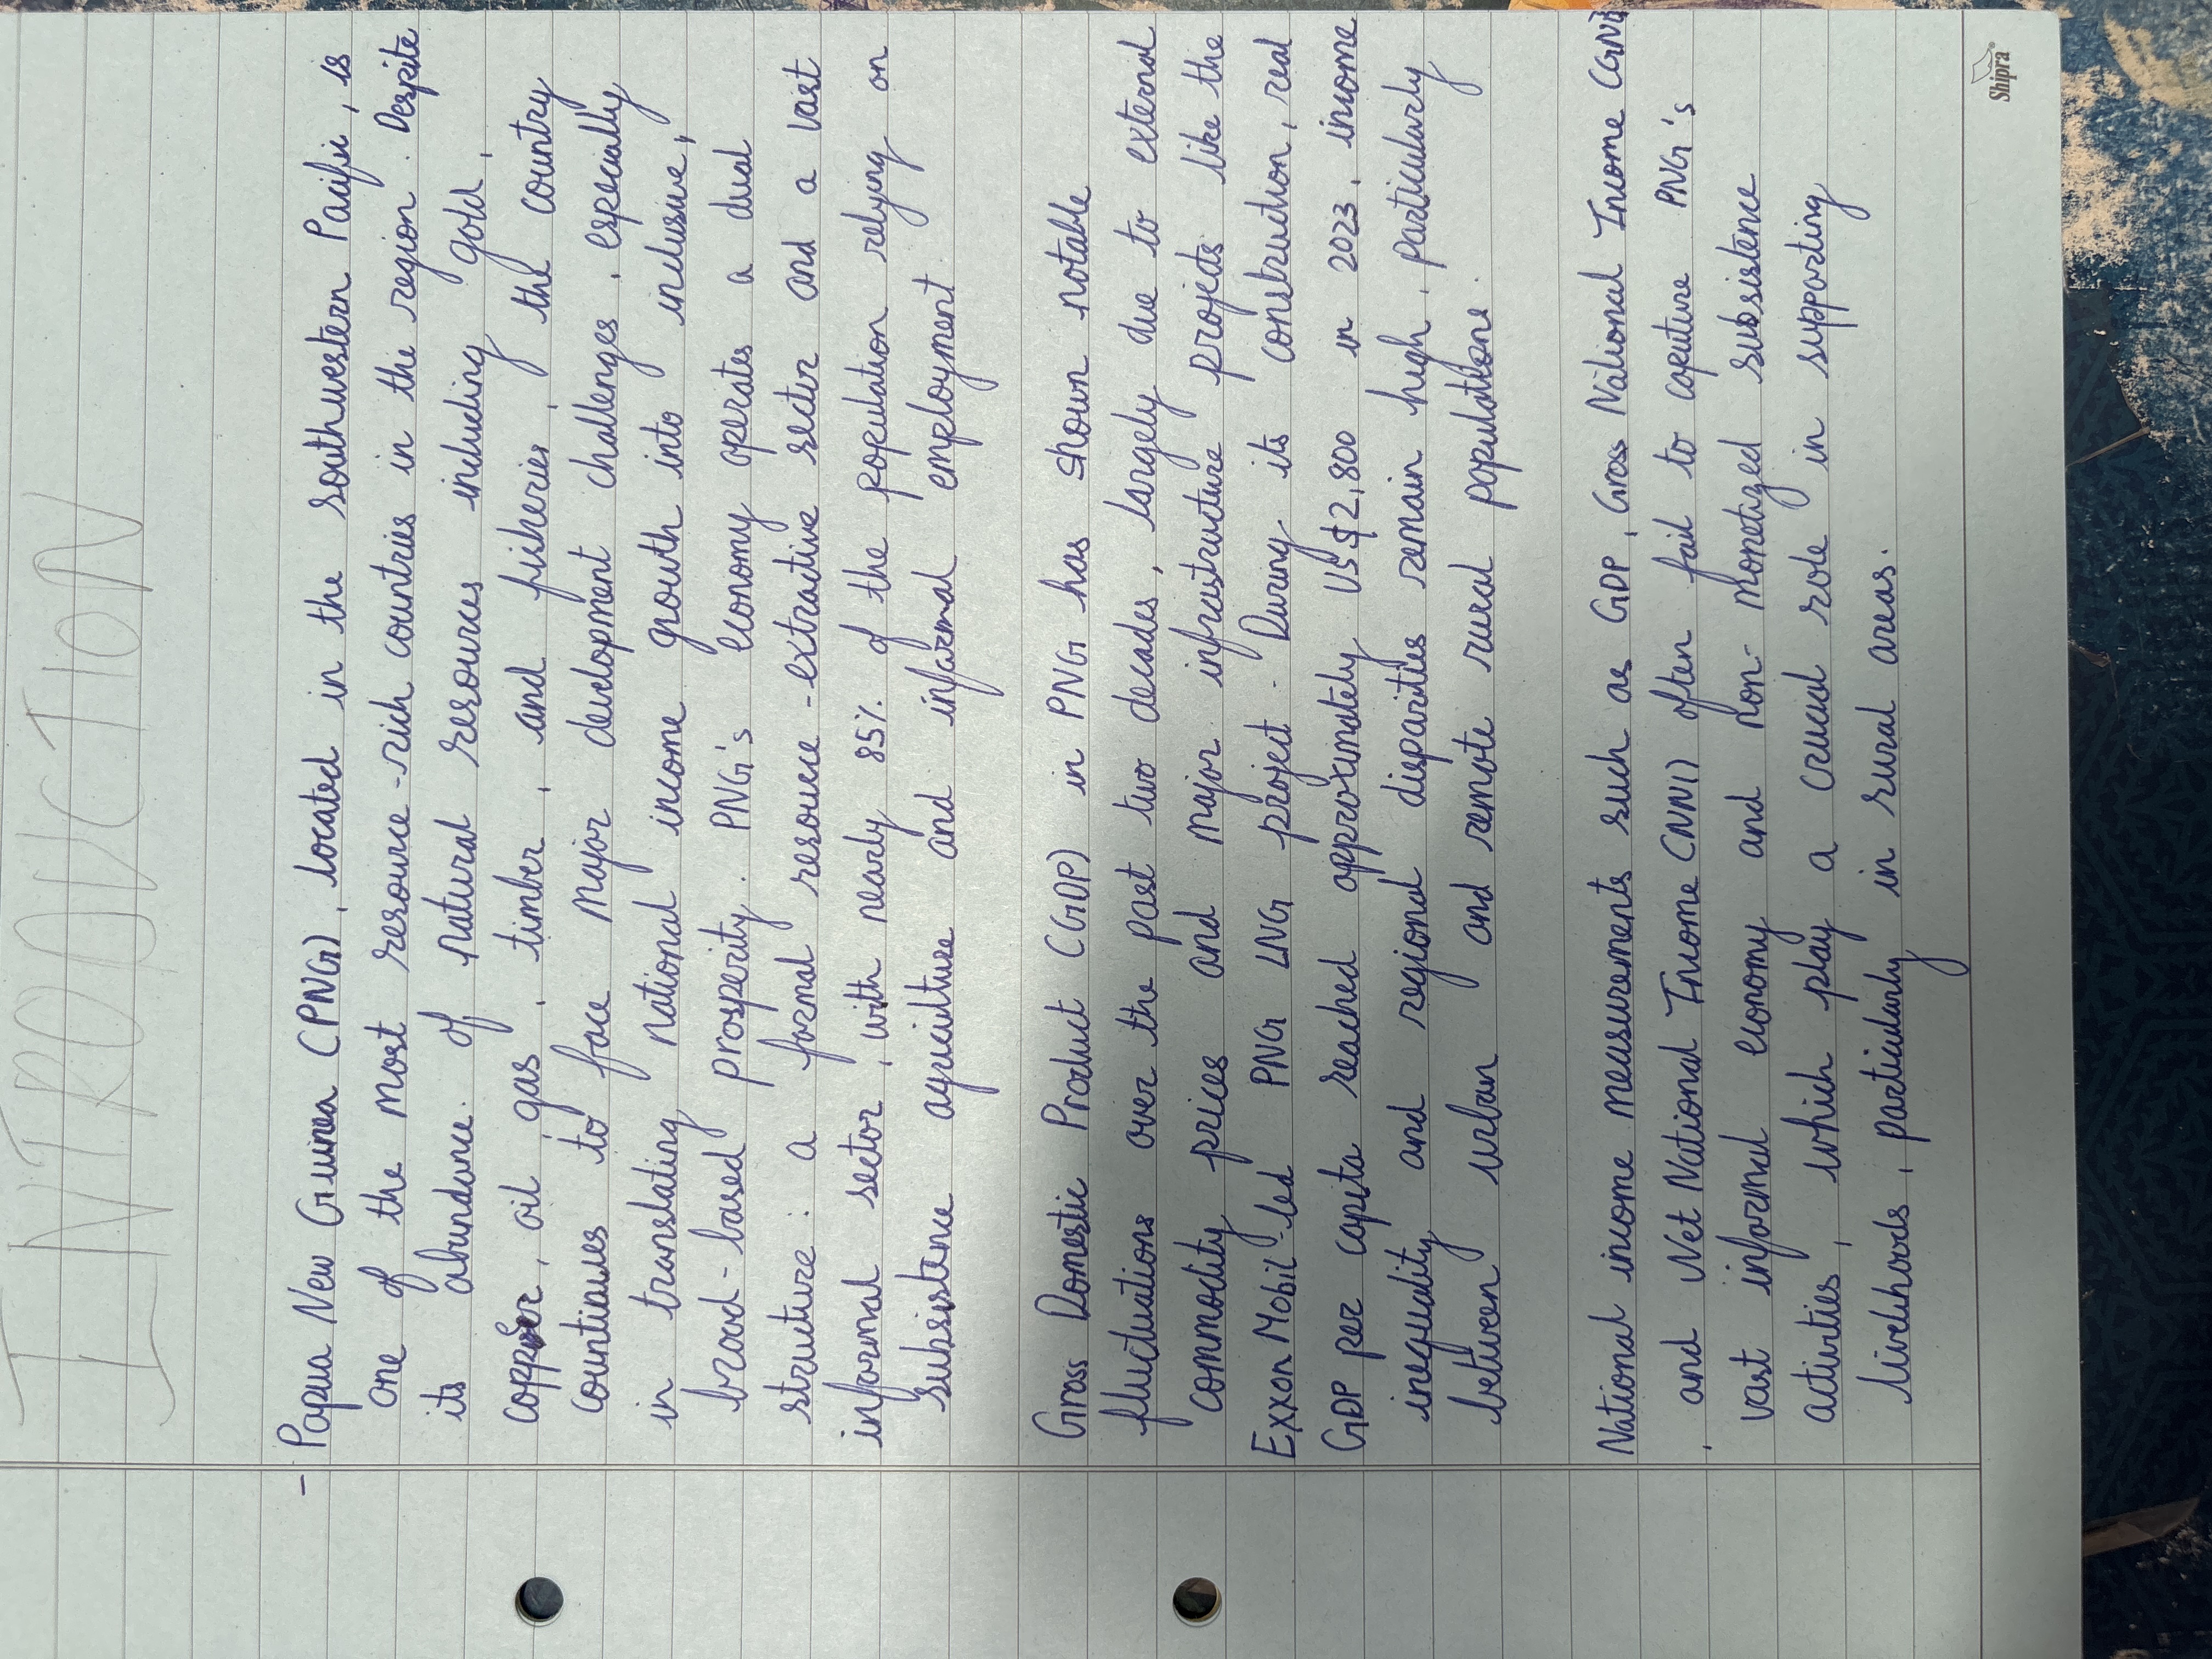 INTRODUCTION
- Papua New Guinea (PNG), located in the southwestern Pacific, is
one of the most resource-rich countries in the region. Despite
its abundance of natural resources including gold,
copper, oil gas, timber, and fisheries, the country
countiaues to face major development challenges, especially
in translating national income growth into inclusive,
broad-based prosperity. PNG's economy operates a dual
structure: a formal resource-extractive sector and a vast
informal sector, with nearly 85% of the population relying on
subsistence agriculture and informal employment
Gross Domestic Product (GDP) in PNG has shown notable
fluctuations over the past two decades, largely due to external
commodity prices and major infrastructure projects like the
Exxon Mobil-led PNG LNG project. During its construction, real
GDP per capita reached approximately US $2,800 in 2023, income
inequality and regional disparities remain high, particularly
between urban and remote rural populations.
National income measurements such as GDP, Gross National Income (GNI)
, and Net National Income (NNI) often fail to capture PNG's
vast informal economy and non-monetized subsistence
activities, which play a crucial role in supporting
livelihoods, particularly in rural areas.
Shipra